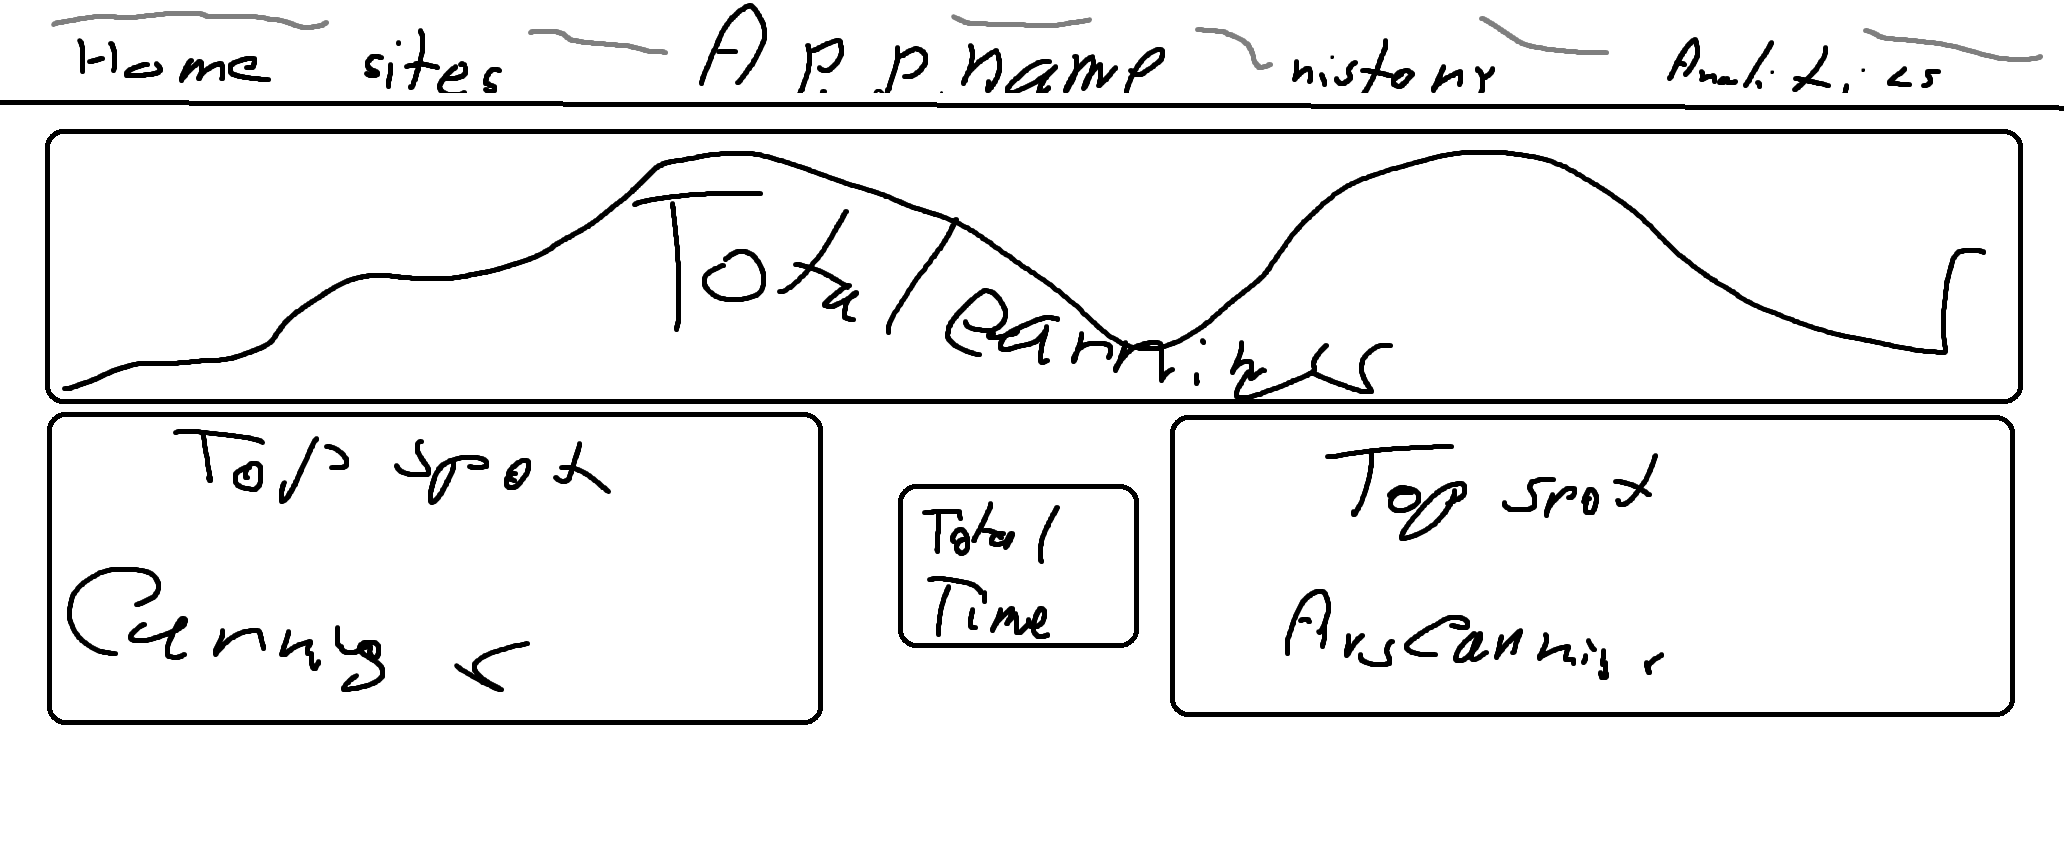 Home sites App.name history Analitics
Total earnings
Top spot
Top spot
Total
Time
Earnings
Avg Earnings